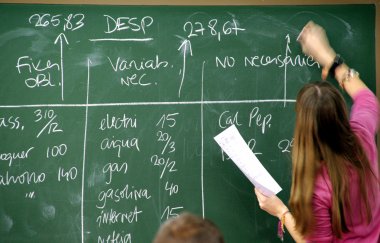 265,83 DESP 278,67
Fixes obl.
Variab. nec.
No necesàries
ass. 310/12
oquer 100
140
electri 15
aigua 20/3
gas 20/2
gasolina 40
internet 15
neteja
Cal Pep.